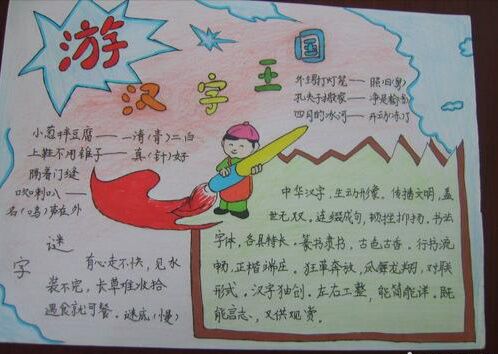 游
汉字王国
外甥打灯笼——照旧(舅)
孔夫子搬家——净是输(书)
四月的冰河——开动(冻)了
小葱拌豆腐——一清(青)二白
上鞋不用锥子——真(针)好
隔着门缝
吹喇叭——
名(鸣)声在外
字谜
有心走不快,见水
装不完,长草难收拾
遇食就可餐。谜底(慢)
中华汉字,生动形象。传播文明,盖
世无双,连缀成句,顿挫抑扬。书法
字体,各具特长。篆书隶书,古色古香。行书流
畅,正楷端庄。狂草奔放,凤舞龙翔,对联
形式。汉字独创。左右工整,能简能详。既
能言志,又供观赏。